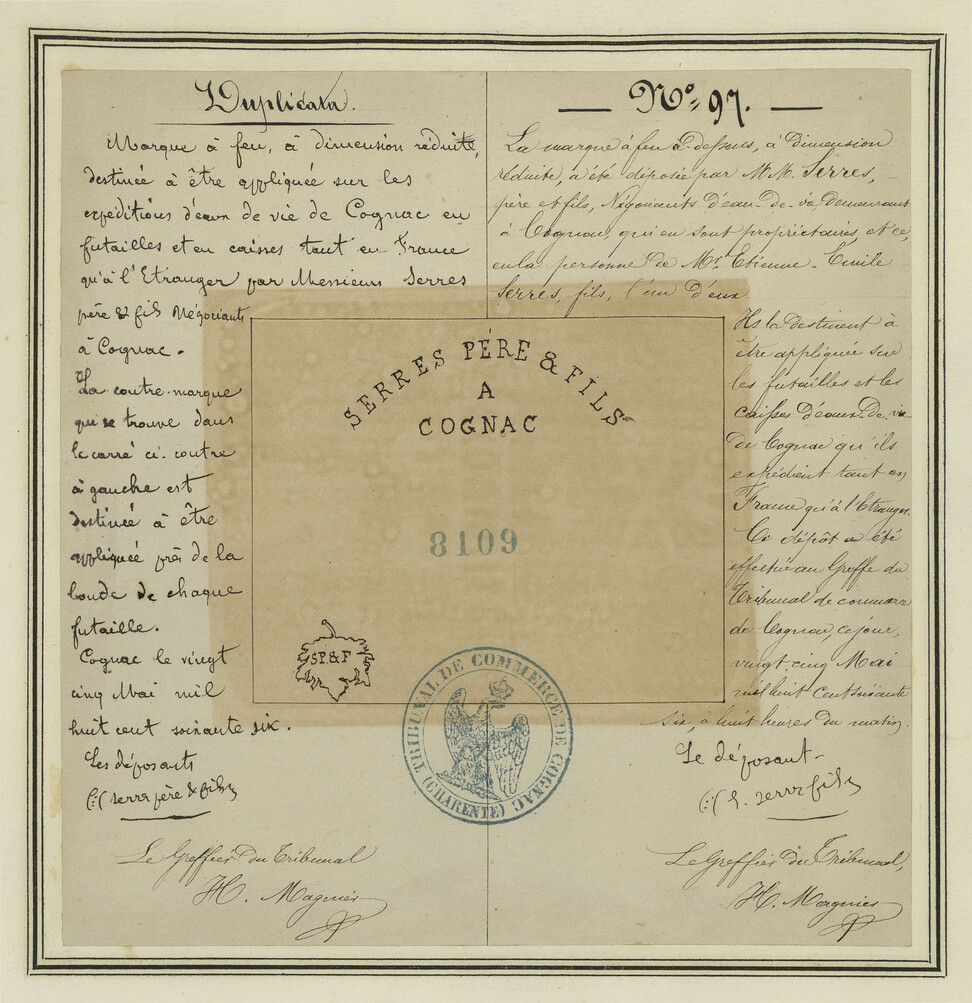 Duplicata.
Marque à feu, à dimension réduite,
destinée à être appliquée sur les
expéditions d'eaux de vie de Cognac en
futailles et en caisses tant en France
qu'à l'Etranger par Messieurs Serres
père & fils Négociants
à Cognac.
La contre-marque
qui se trouve dans
le carré ci-contre
à gauche est
destinée à être
appliquée près de la
bonde de chaque
futaille.
Cognac le vingt
cinq Mai mil
huit cent soixante six.
Les déposants
(:( Serres père & fils
Le Greffier du Tribunal
H. Magnier
SERRES PÉRE & FILS
A
COGNAC
8109
S.P.&F
TRIBUNAL DE COMMERCE DE COGNAC
(CHARENTE)
— No. 97. —
La marque à feu ci-dessus, à dimension
réduite, a été déposée par M.M. Serres,
père et fils, Négociants d'eau-de-vie, demeurant
à Cognac, qui en sont propriétaires, et ce,
en la personne de Mr. Etienne-Emile
Serres, fils, l'un d'eux
Ils la destinent à
être appliquée sur
les futailles et les
caisses d'eaux-de-vie
de Cognac qu'ils
expédient tant en
France qu'à l'Etranger.
Ce dépôt a été
effectué au Greffe du
Tribunal de commerce
de Cognac, cejour,
vingt-cinq Mai
mil huit cent soixante
six, à huit heures du matin.
Le déposant-
(:( E. Serres fils
Le Greffier du Tribunal,
H. Magnier